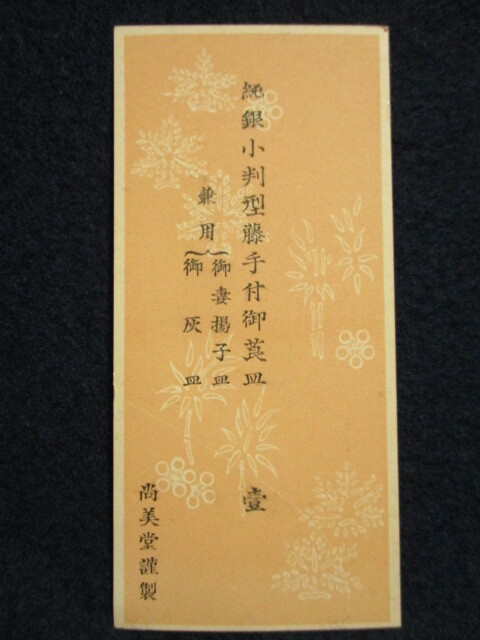 純銀小判型藤手付御莨皿 壹
兼用
御妻揚子皿
御灰皿
尚美堂謹製